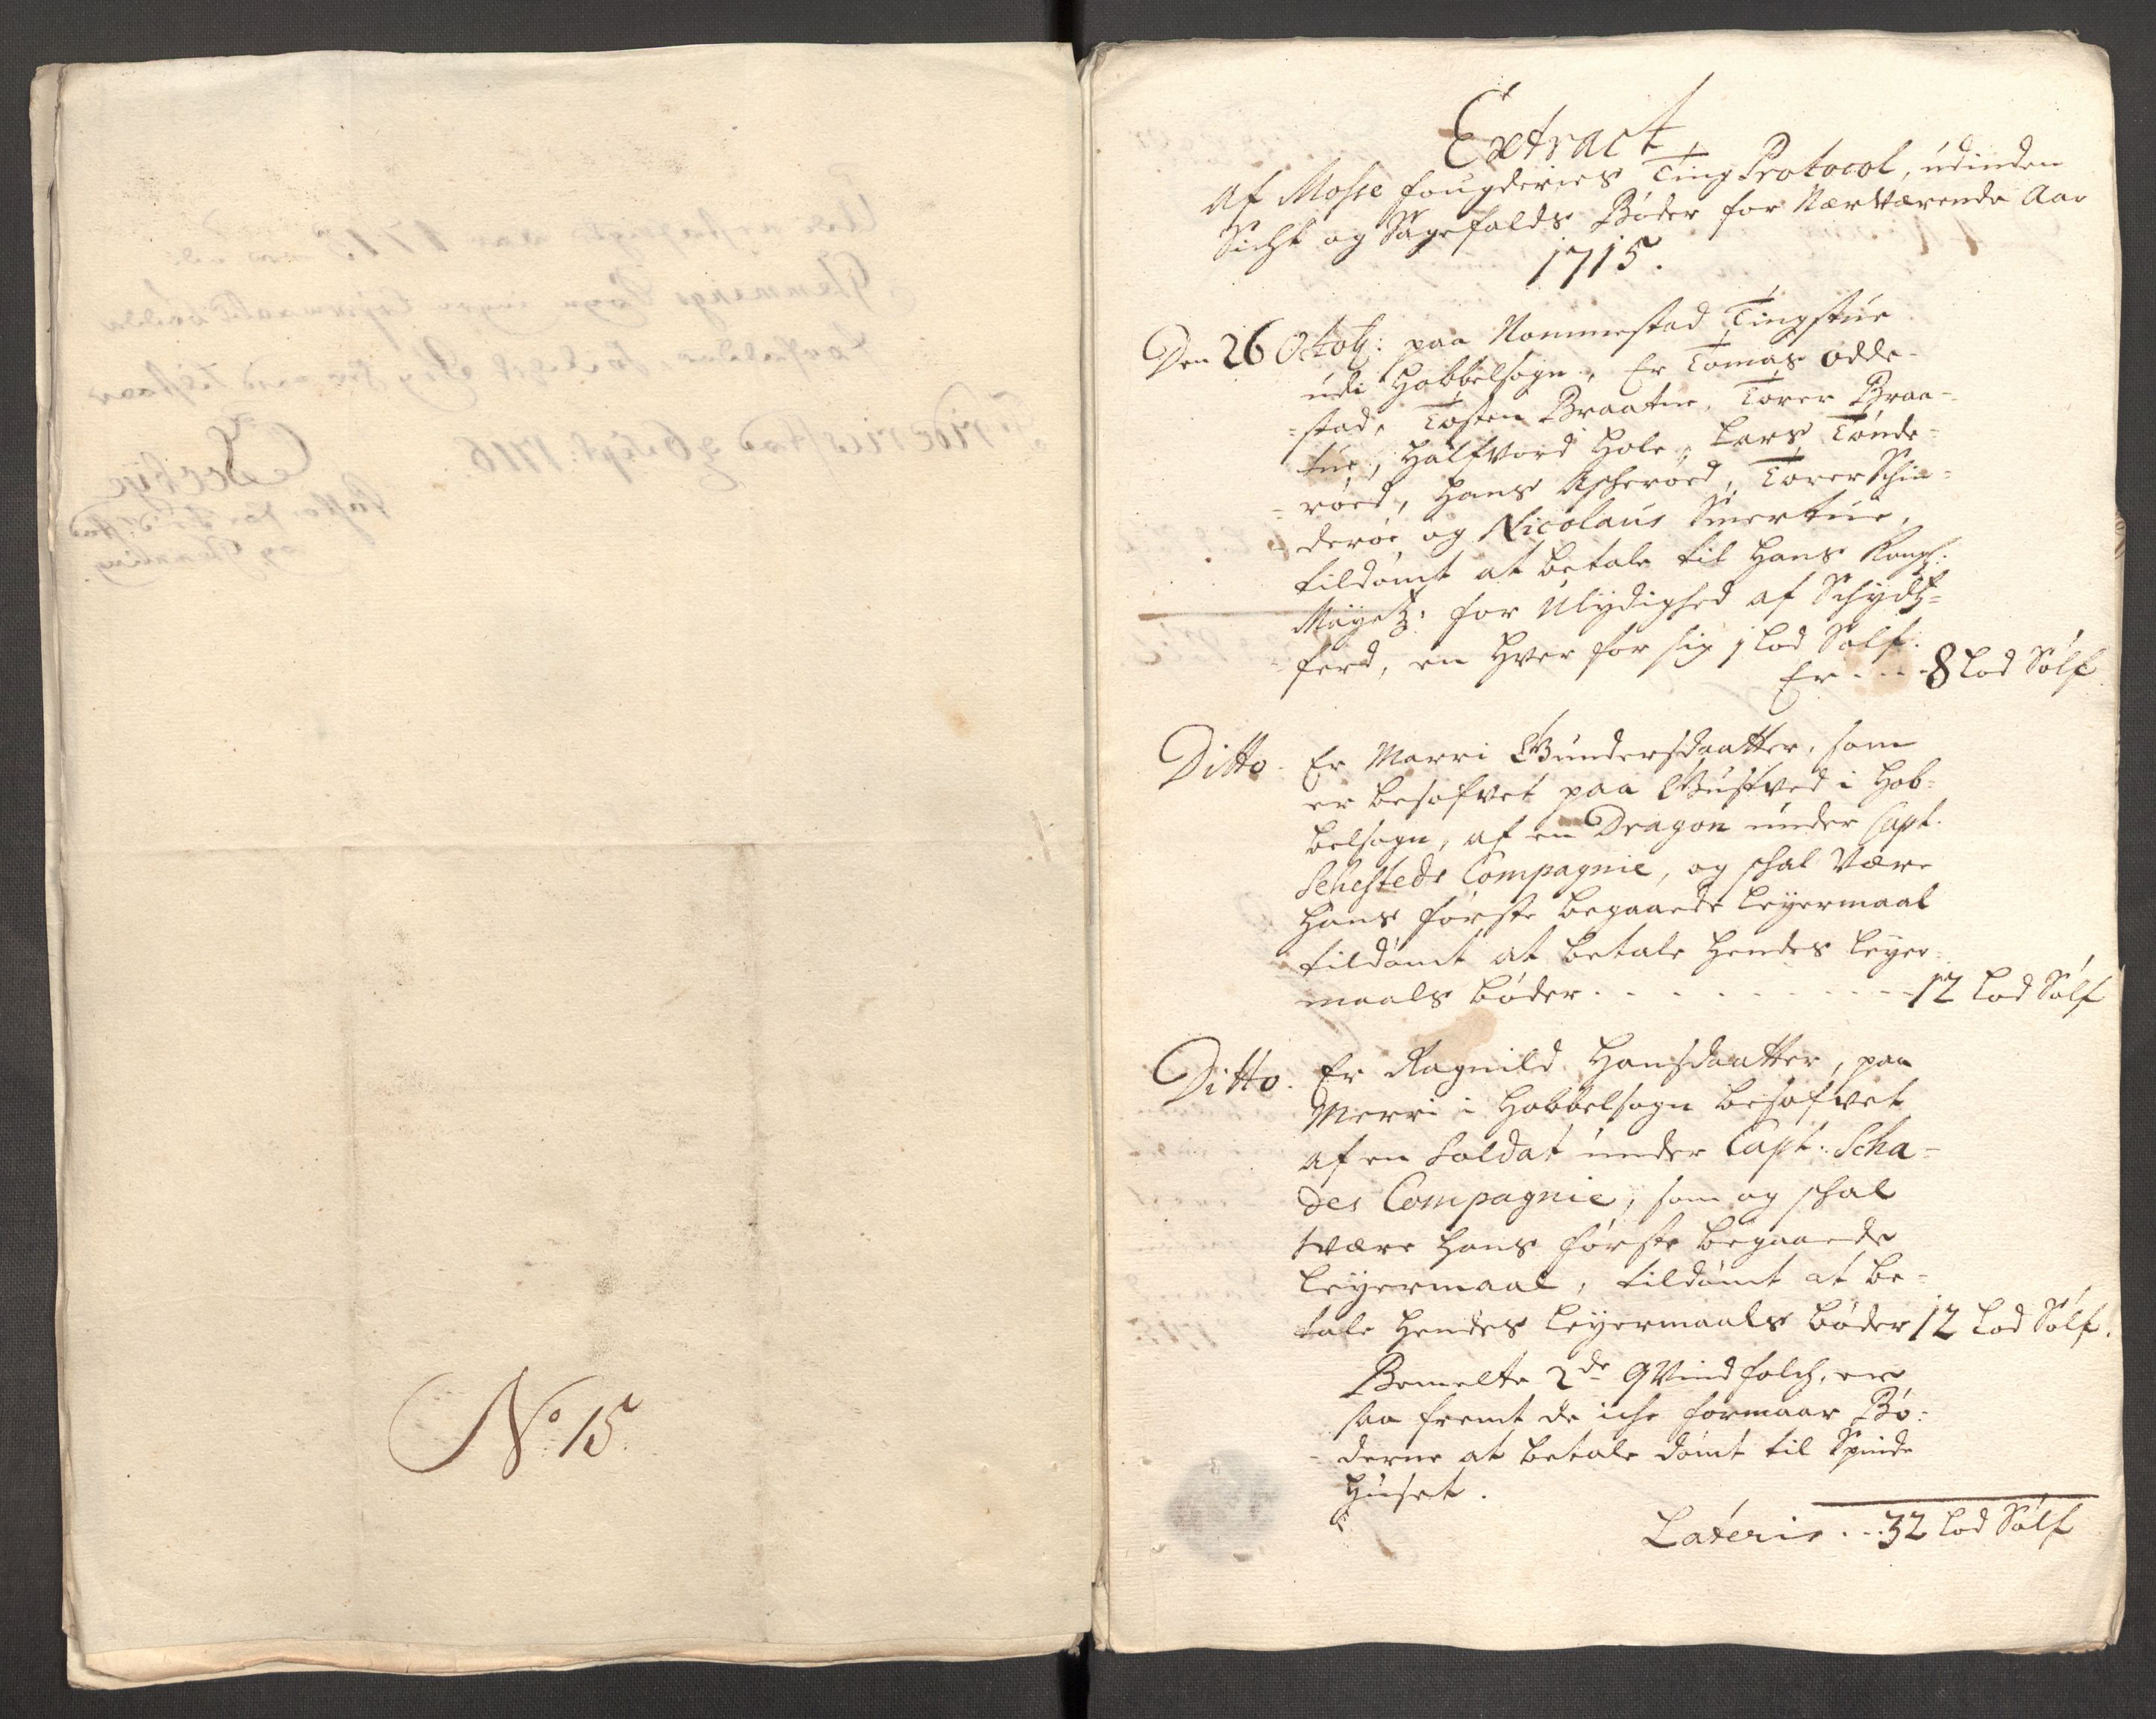 No: 15.
Extract
Af Mosse fougderies Ting Protocol, udinden
Sicht og Sagefalds Bøder for Nærværende Aar
1715.
Den 26 Octob: paa Nommestad Tingstue
udi Hobbelsogn, Er Tomas Odde-
=stad, Tosten Braatne, Torer Braa-
tne, Halfvord Hole, Lars Tønde-
=røed, Hans Ascherøed, Torer Schin-
=derøe og Nicolaus Smertue,
tildømt at betale til Hans Kongl:
Mayetz: for Ulydighed af Schydtz-
=ferd, en hver for sig 1 lod Sølf.
Er . . . 8 Lod Sølf
Ditto. Er Marri Gundersdaatter, som
er besofvet paa Gustved i Hob-
belsogn, af en Dragon under Capt.
Sehesteds Compagnie, og schal Være
hans første begaaede Leyermaal
tildømt at betale hendes Leyer-
maals bøder . . . . . . . . 12 Lod Sølf
Ditto. Er Ragnild Hansdaatter, paa
Merri i Hobbelsogn besofvet
af en Soldat under Capt: Scha-
des Compagnie, som og schal
være hans første begaaede
Leyermaal, tildømt at be-
tale hendes Leyermaals bøder 12 Lod Sølf.
Bemelte 2de qVindfolch, er
saa fremt de iche formaar Bø-
=derne at betale dømt til Spinde
Huset.
Lateris . . . 32 Lod Sølf